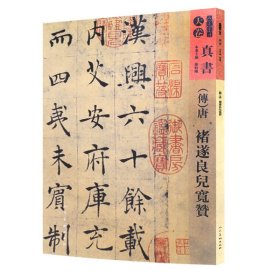 大卷
真書
（傳唐 褚遂良兒寬贊
漢興六十餘載
内艾安府庫充
而四夷未賓制